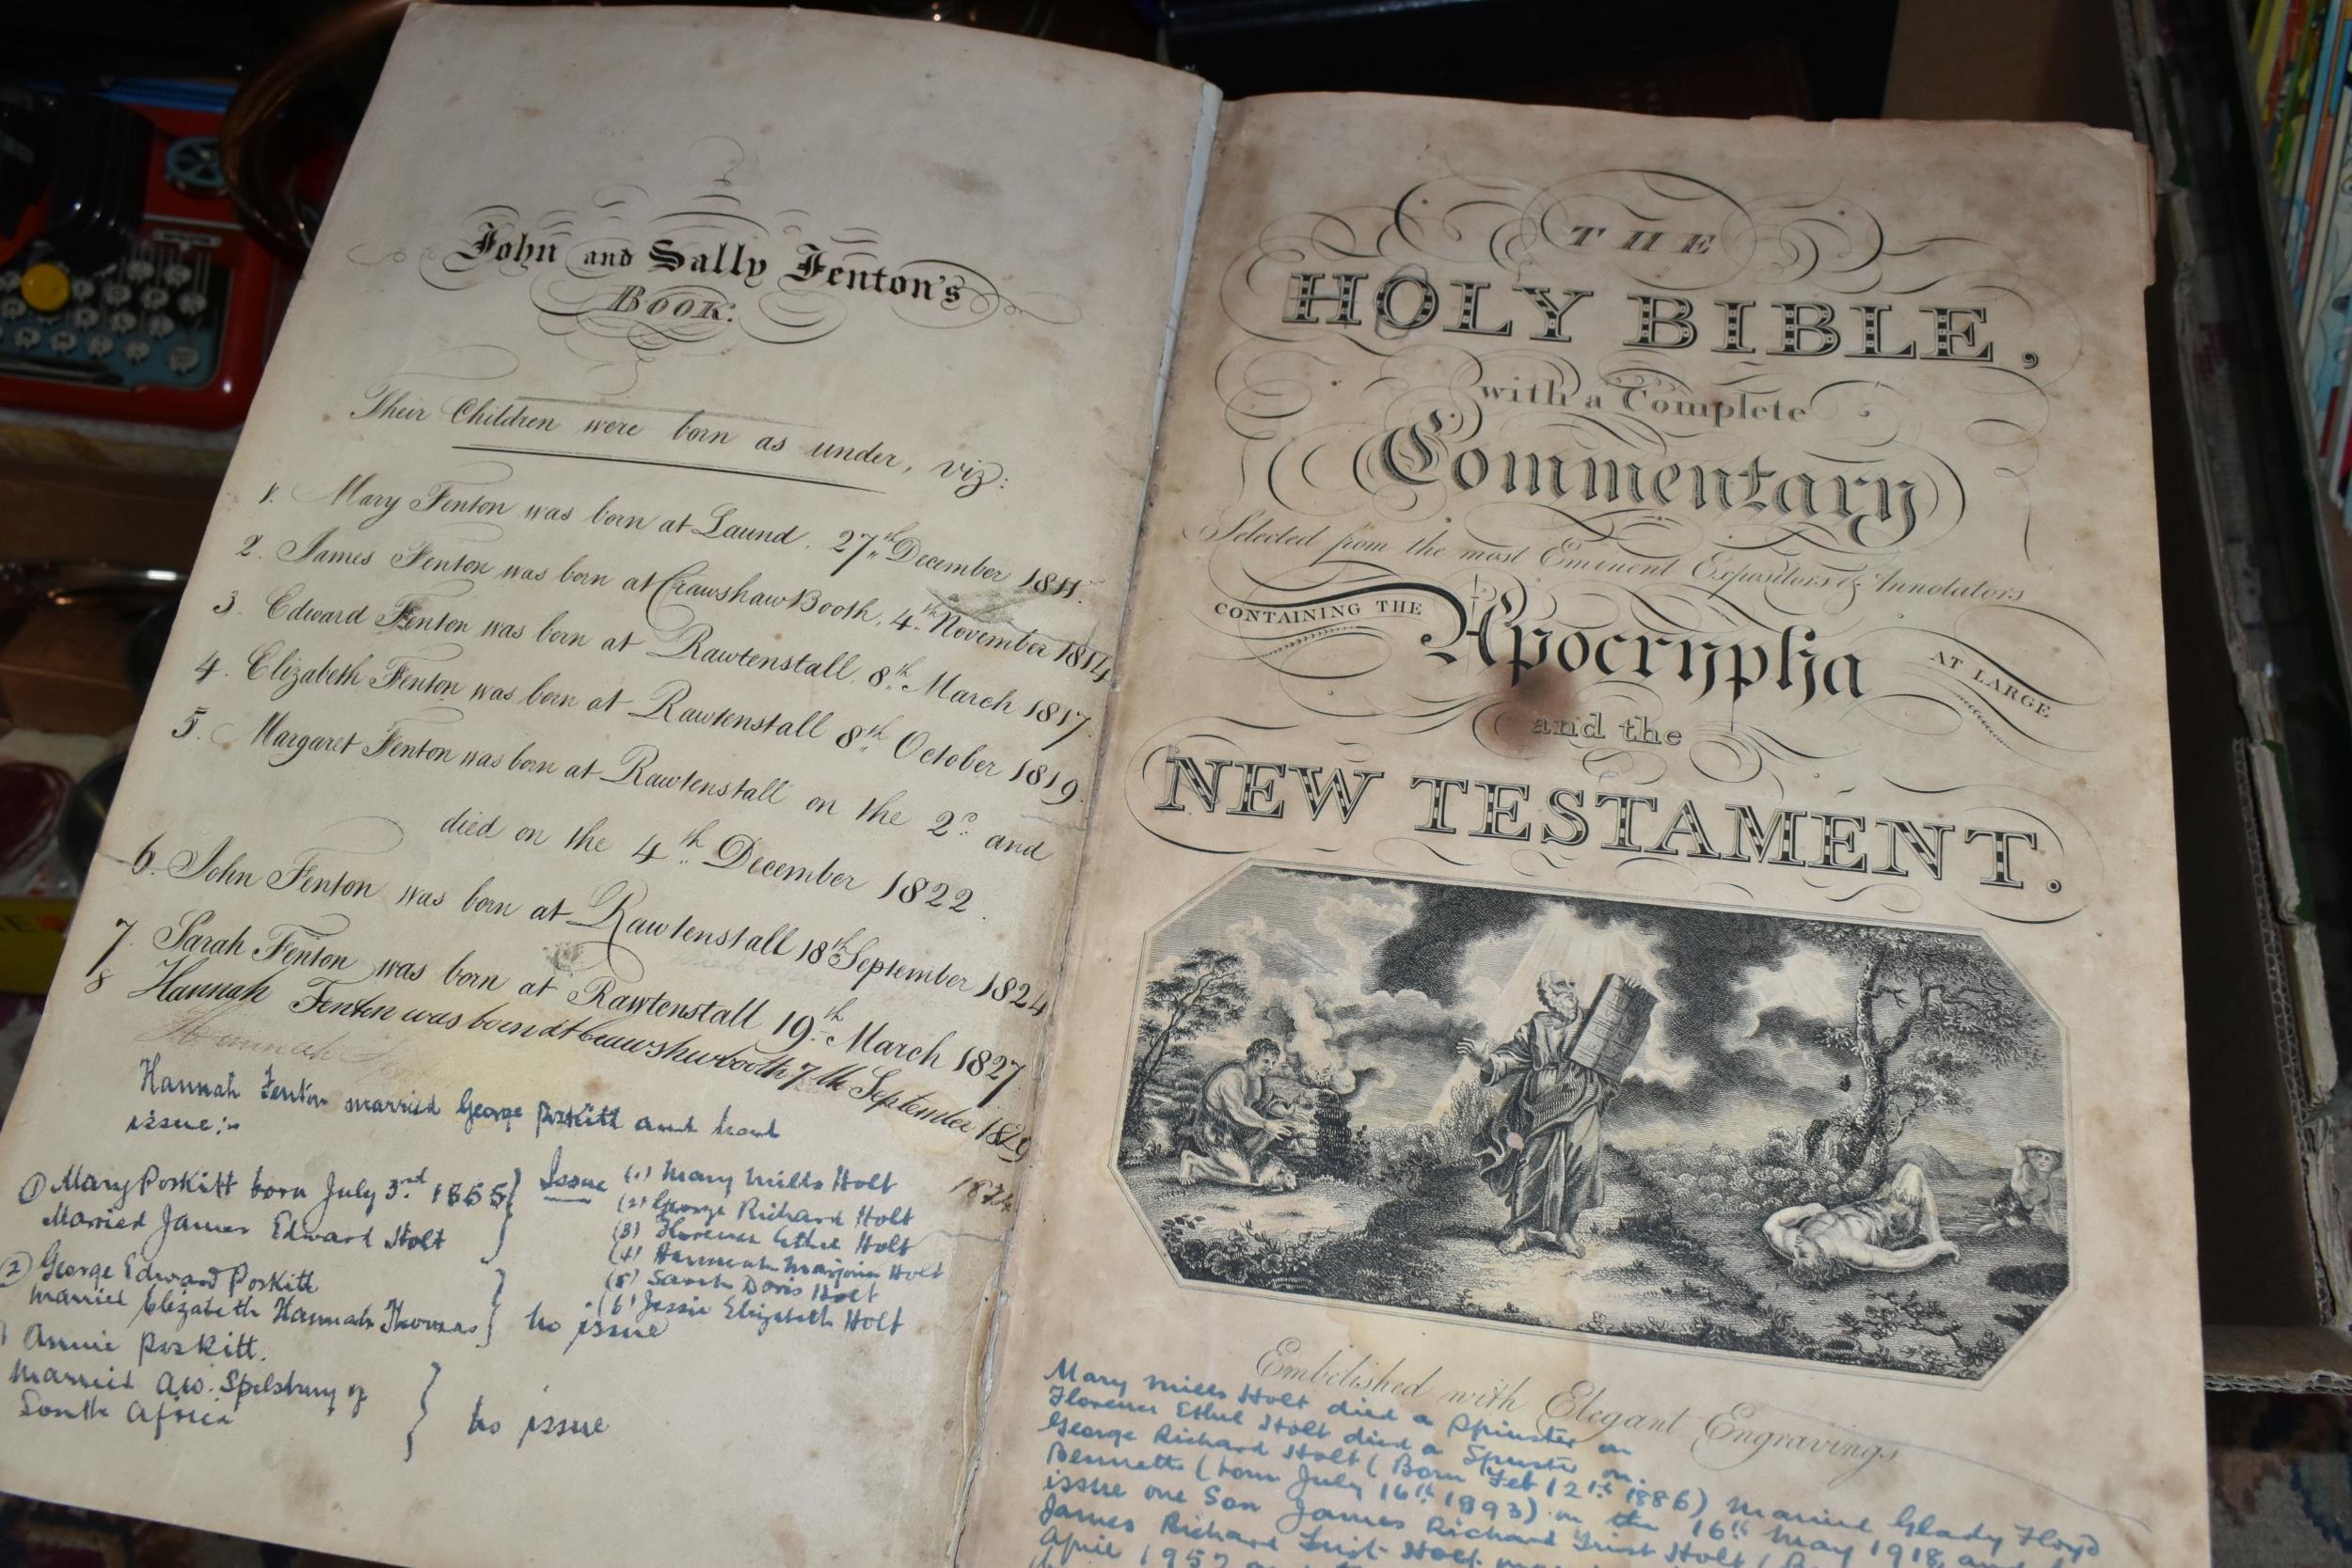 John and Sally Fenton's
BOOK.
Their Children were born as under, viz:
1. Mary Fenton was born at Laund, 27th December 1811.
2. James Fenton was born at Crawshaw Booth, 4th November 1814
3. Edward Fenton was born at Rawtenstall, 8th March 1817.
4. Elizabeth Fenton was born at Rawtenstall 8th October 1819.
5. Margaret Fenton was born at Rawtenstall on the 2d and
died on the 4th December 1822.
6. John Fenton was born at Rawtenstall 18th September 1824
7. Sarah Fenton was born at Rawtenstall 19th March 1827
8 Hannah Fenton was born at Crawshawbooth 7th September 1829
Hannah
Hannah Fenton married George Poskitt and had
issue:-
① Mary Poskitt born July 3rd 1865
Married James Edward Holt
Issue (1) Mary Mills Holt
(2) George Richard Holt
(3) Florence Ethel Holt
(4) Hannah Marjorie Holt
(5) Sarah Doris Holt
(6) Jessie Elizabeth Holt
② George Edward Poskitt
married Elizabeth Hannah Thomas
no issue
Annie Poskitt.
Married A.W. Spelsbury of
South Africa
no issue
THE
HOLY BIBLE,
with a Complete
Commentary
Selected from the most Eminent Expositors & Annotators
CONTAINING THE
Apocrypha
AT LARGE
and the
NEW TESTAMENT.
Embelished with Elegant Engravings
Mary Mills Holt died a Spinster on
Florence Ethel Holt died a Spinster on
George Richard Holt (Born Feb 12th 1886) married Glady Floyd
Bennett (born July 16th 1893) on the 16th May 1918 and
issue one Son James Richard Holt
James Richard Holt
April 1957